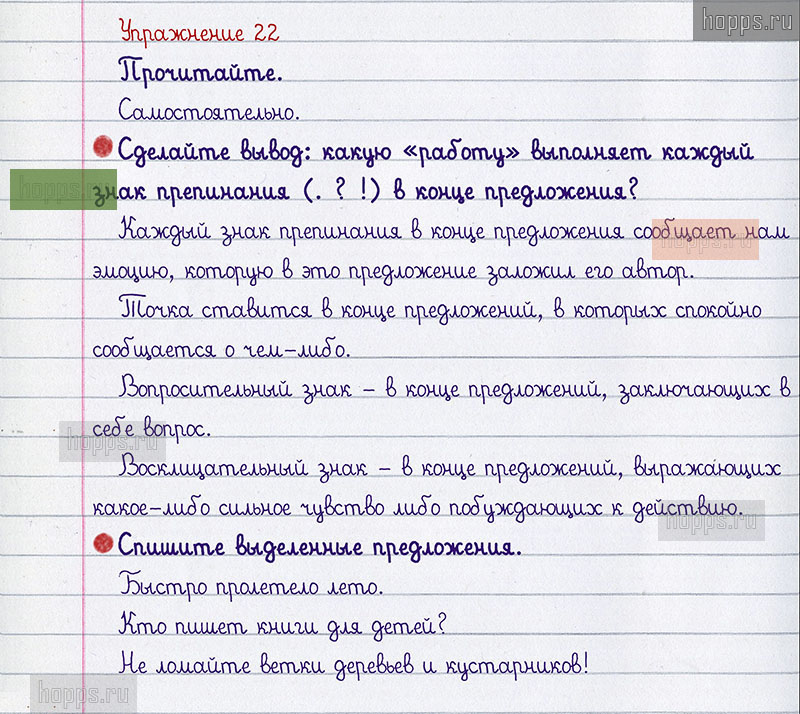 hopps.ru
Упражнение 22
Прочитайте.
Самостоятельно.
Сделайте вывод: какую «работу» выполняет каждый
hopps.ru
знак препинания (. ? !) в конце предложения?
Каждый знак препинания в конце предложения сообщает нам
hopps.ru
эмоцию, которую в это предложение заложил его автор.
Точка ставится в конце предложений, в которых спокойно
сообщается о чем-либо.
Вопросительный знак – в конце предложений, заключающих в
себе вопрос.
hopps.ru
Восклицательный знак – в конце предложений, выражающих
какое-либо сильное чувство либо побуждающих к действию.
hopps.ru
Спишите выделенные предложения.
Быстро пролетело лето.
Кто пишет книги для детей?
Не ломайте ветки деревьев и кустарников!
hopps.ru